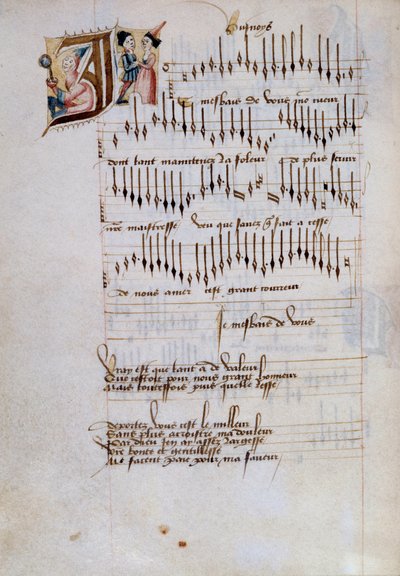 Busnoys
Je mesbais de vous mon cueur
dont tant maintenez la foleur Et de plus servir
nre maistresse Veu que savez q fait a cesse
De nous amer cest grant
Je mesbais de vous
Vray est que tant a de valeur
Que cestoit pour nous grant honneur
Mais toutesfois puis quelle cesse
Deportez vous cest le milleur
Sans plus acroistre ma douleur
Par dieu jen ay assez largesse
Vre bonte et gentillesse
facent pour ma faveur